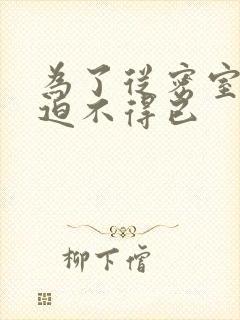 為了從密室
迫不得已
柳下僧